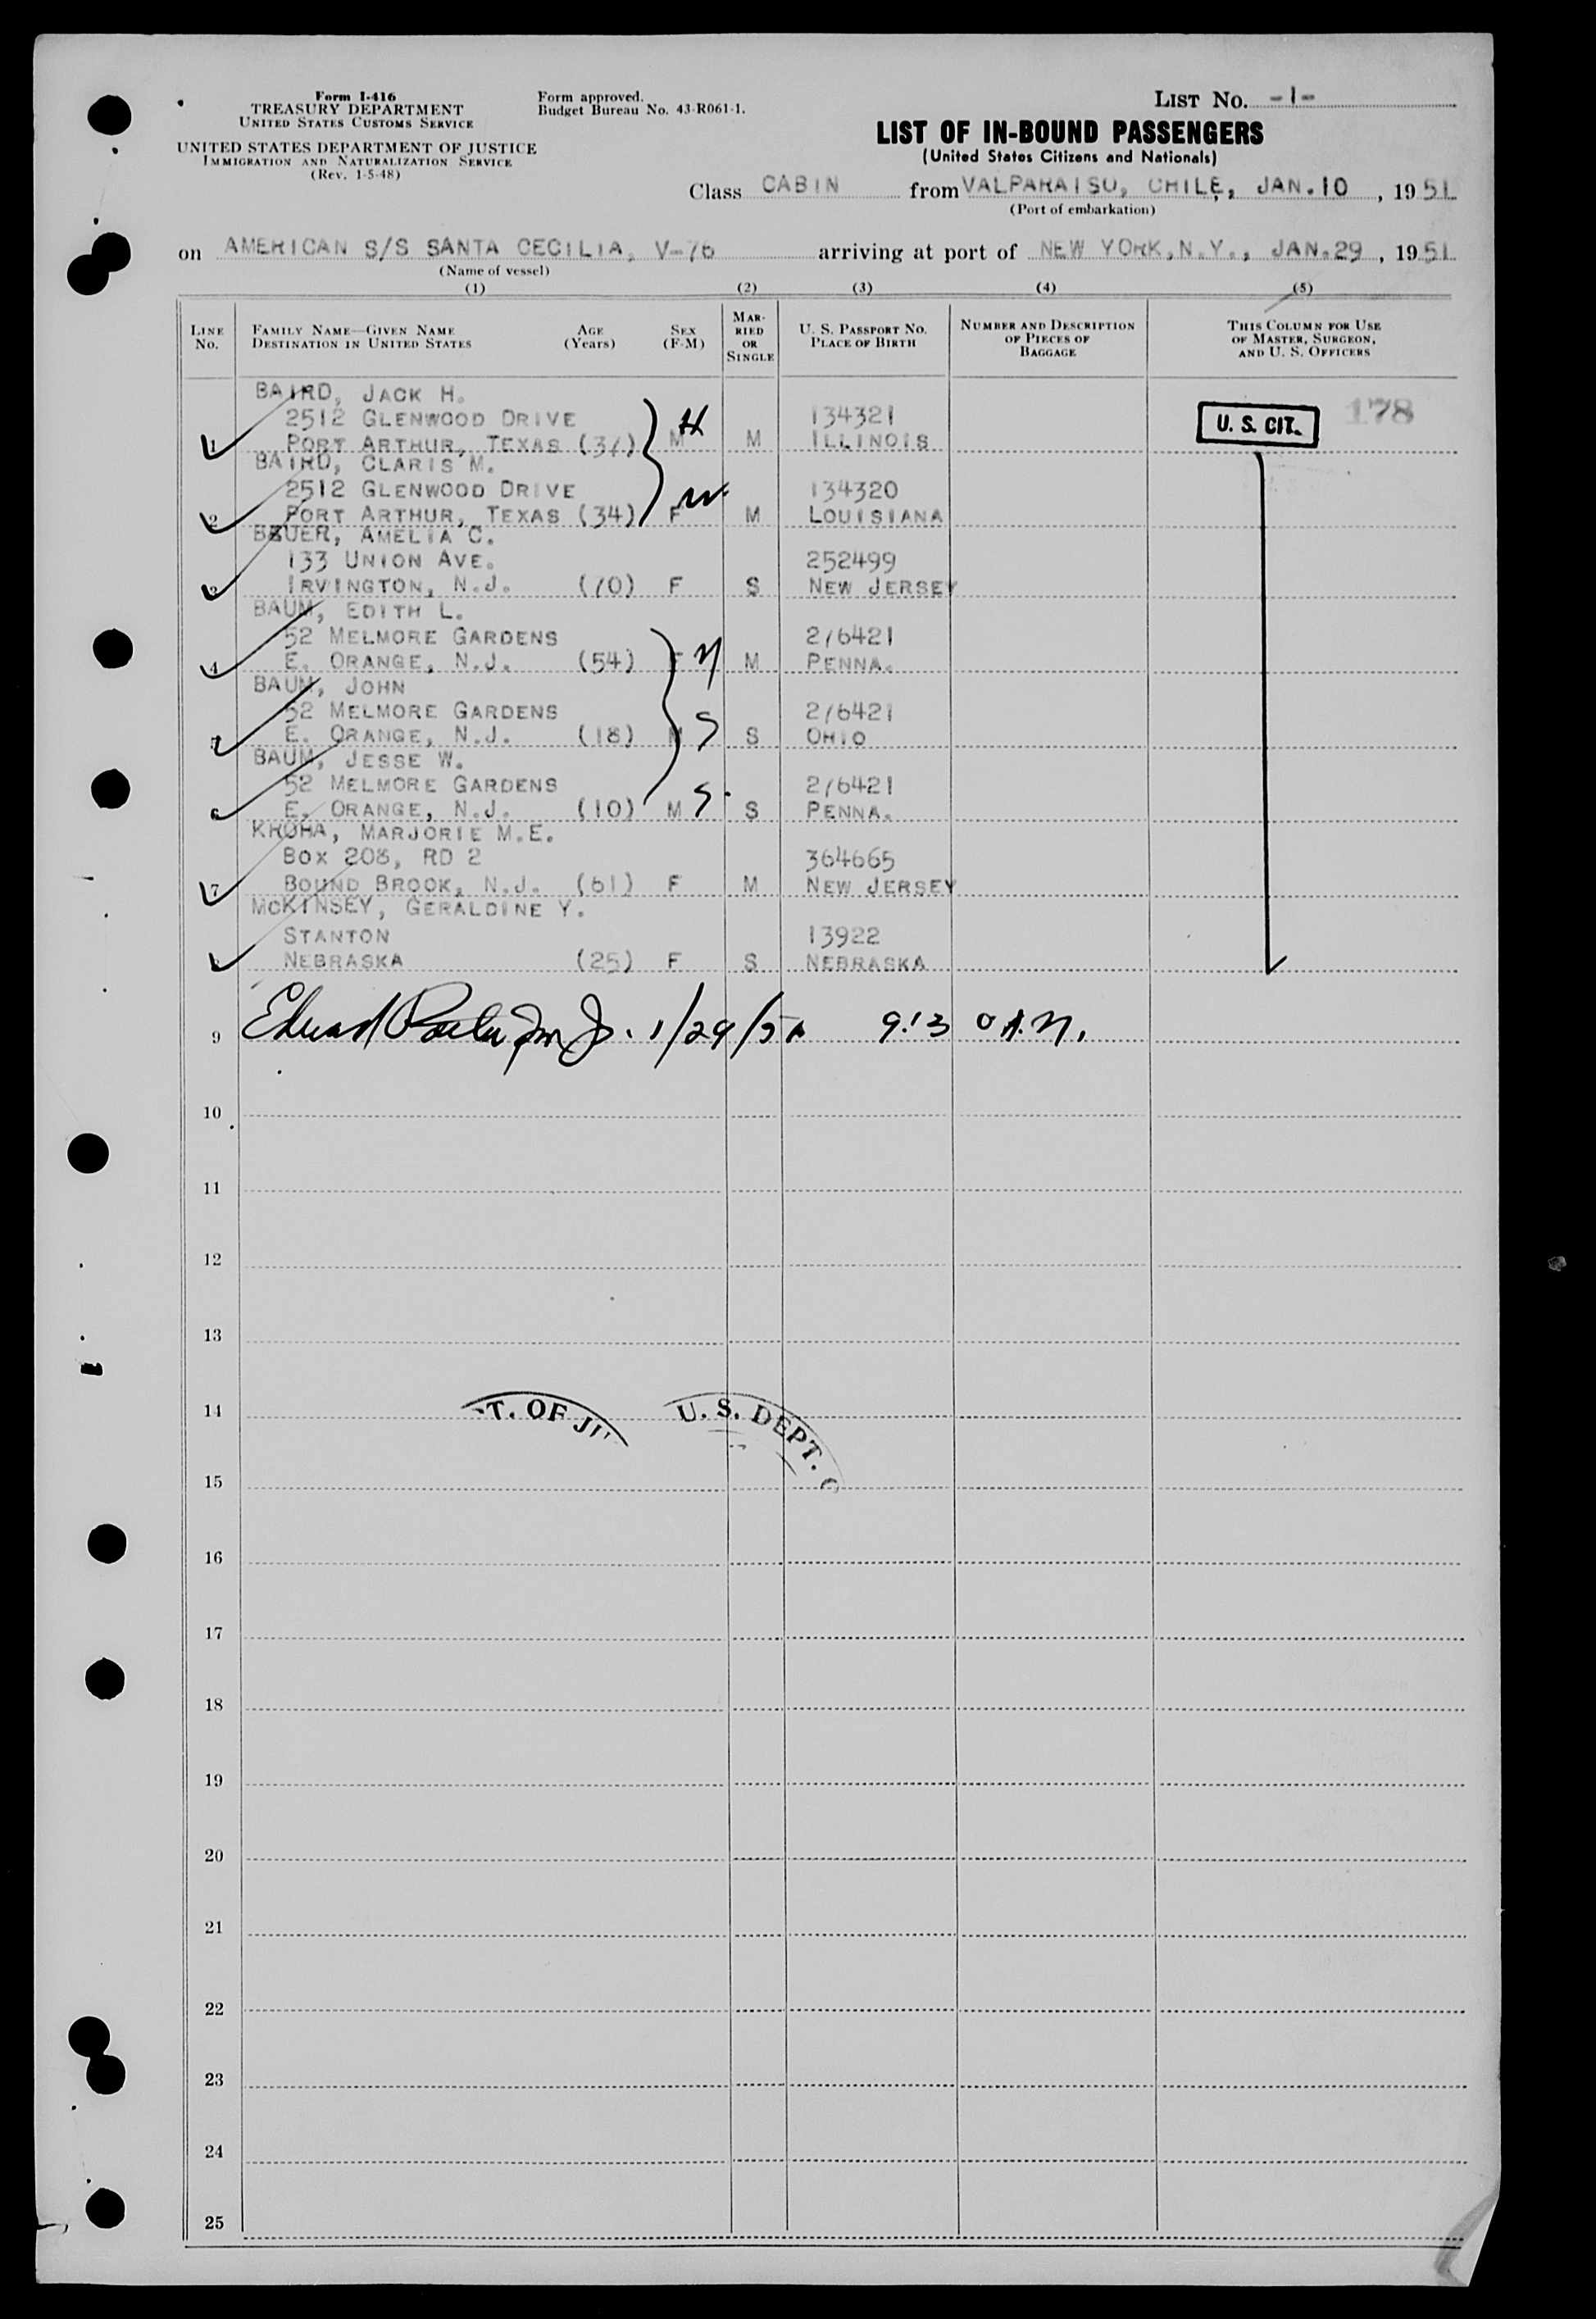 Form I-416
TREASURY DEPARTMENT
UNITED STATES CUSTOMS SERVICE
UNITED STATES DEPARTMENT OF JUSTICE
IMMIGRATION AND NATURALIZATION SERVICE
(Rev. 1-5-48)
Form approved.
Budget Bureau No. 43-R061-1.
LIST NO. -1-
LIST OF IN-BOUND PASSENGERS
(United States Citizens and Nationals)
Class CABIN from VALPARAISO, CHILE, JAN.10, 1951
(Port of embarkation)
on AMERICAN S/S SANTA CECILIA, V-76 arriving at port of NEW YORK,N.Y., JAN.29, 1951
(Name of vessel)
(1) (2) (3) (4) (5)
LINE NO.
FAMILY NAME—GIVEN NAME
DESTINATION IN UNITED STATES
AGE
(Years)
SEX
(F-M)
MARRIED OR SINGLE
U. S. PASSPORT NO.
PLACE OF BIRTH
NUMBER AND DESCRIPTION
OF PIECES OF
BAGGAGE
THIS COLUMN FOR USE
OF MASTER, SURGEON,
AND U. S. OFFICERS
BAIRD, JACK H.
2512 GLENWOOD DRIVE 134321 U. S. CIT. 178
1 PORT ARTHUR, TEXAS (37) M H M ILLINOIS
BAIRD, CLARIS M.
2512 GLENWOOD DRIVE 134320
2 PORT ARTHUR, TEXAS (34) F W M LOUISIANA
BAUER, AMELIA C.
133 UNION AVE. 252499
3 IRVINGTON, N.J. (70) F S NEW JERSEY
BAUM, EDITH L.
52 MELMORE GARDENS 276421
4 E. ORANGE, N.J. (54) F M M PENNA.
BAUM, JOHN
52 MELMORE GARDENS 276421
5 E. ORANGE, N.J. (18) M S S OHIO
BAUM, JESSE W.
52 MELMORE GARDENS 276421
6 E. ORANGE, N.J. (10) M S S PENNA.
KROHA, MARJORIE M.E.
BOX 208, RD 2 364665
7 BOUND BROOK, N.J. (61) F M NEW JERSEY
MCKINSEY, GERALDINE Y.
STANTON 13922
8 NEBRASKA (25) F S NEBRASKA
9 Edward 1/29/51 9:30 A.M.
10
11
12
13
14
T. OF JU
U. S. DEPT. O
15
16
17
18
19
20
21
22
23
24
25